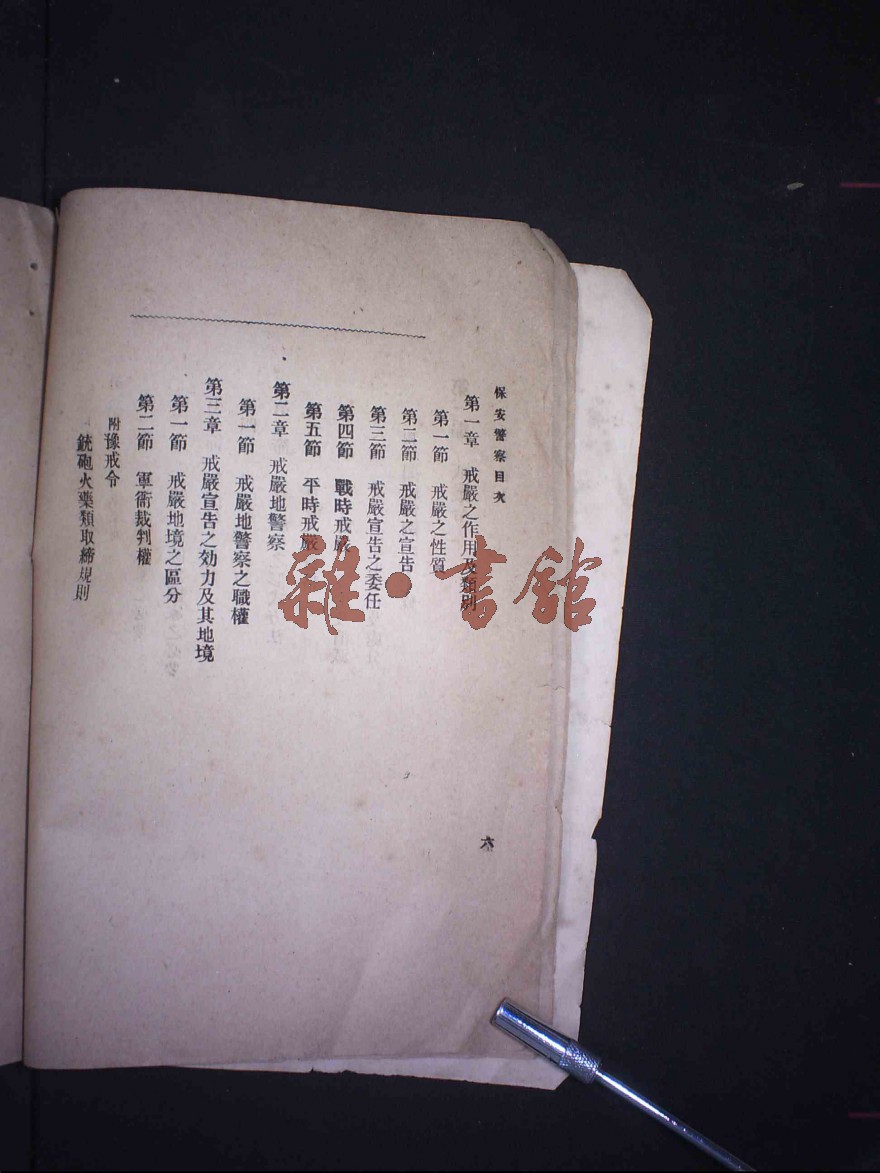 保安警察目次
第一章 戒嚴之作用及類別
第一節 戒嚴之性質
第二節 戒嚴之宣告
第三節 戒嚴宣告之委任
第四節 戰時戒嚴
第五節 平時戒嚴
第二章 戒嚴地警察
第一節 戒嚴地警察之職權
第三章 戒嚴宣告之効力及其地境
第一節 戒嚴地境之區分
第二節 軍衙裁判權
附豫戒令
銃砲火藥類取締規則
六
雜·書館